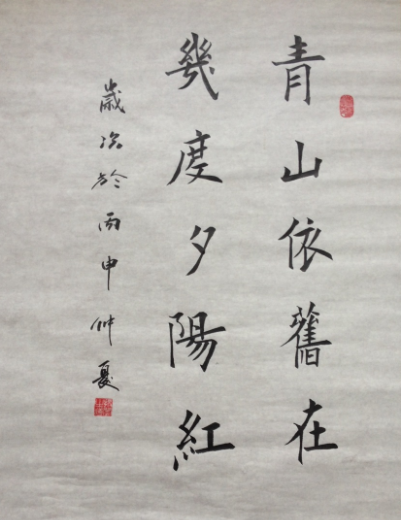 青山依舊在
幾度夕陽紅
歲次於丙申仲夏